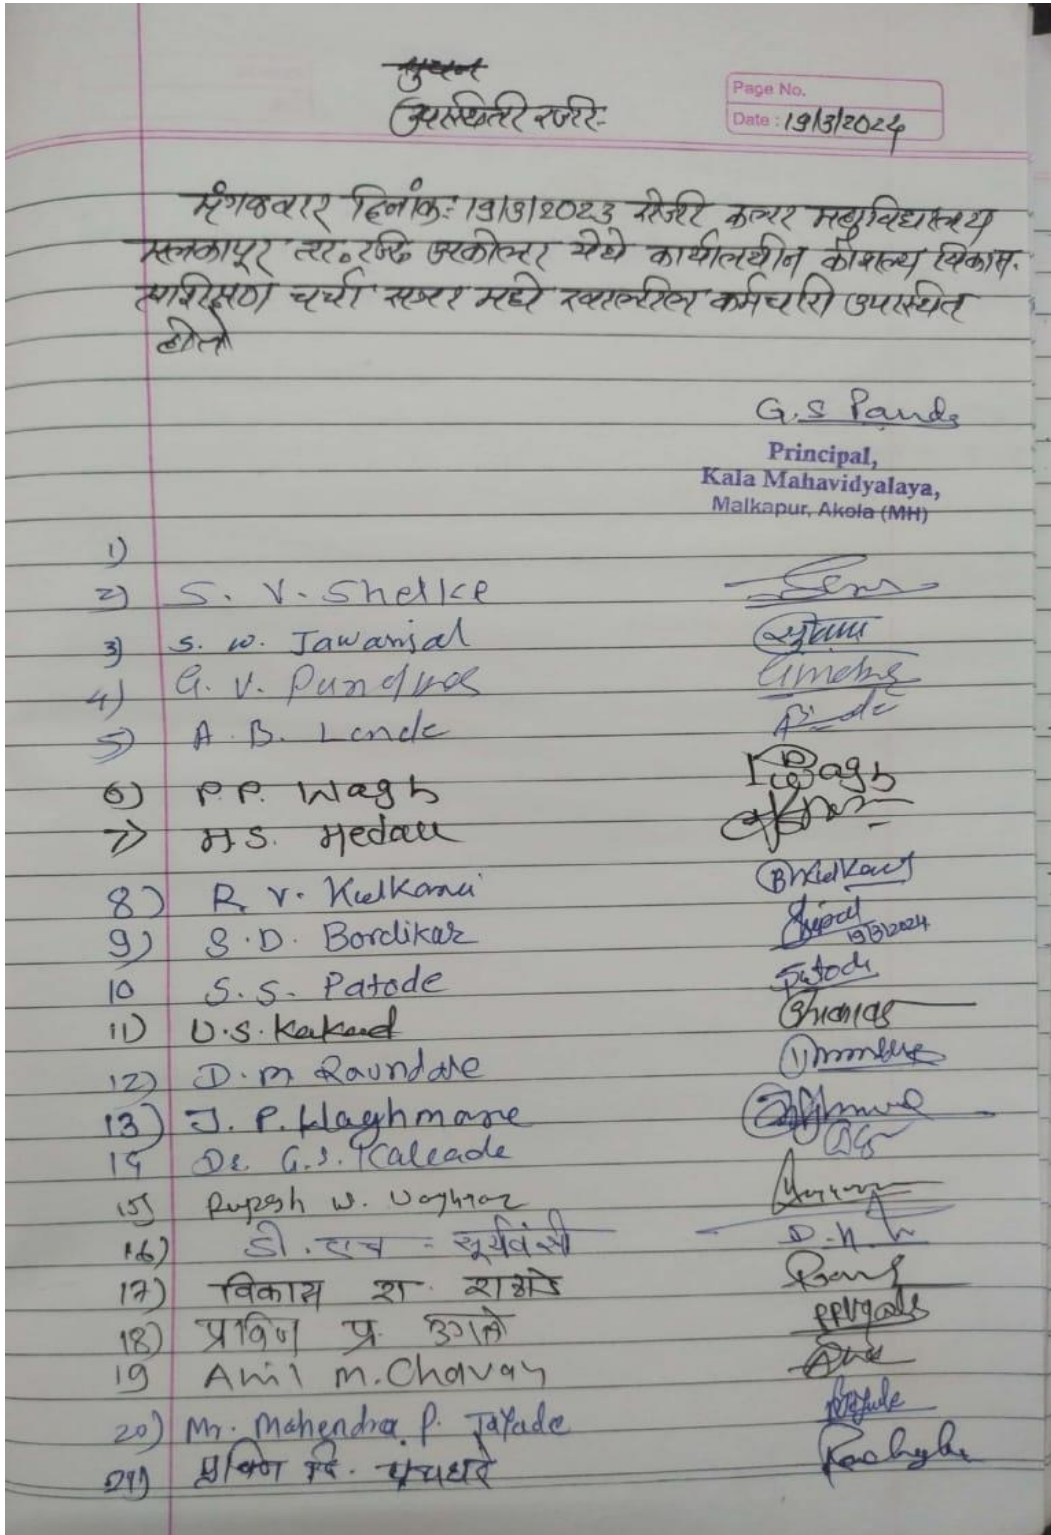 सुचना
उपस्थिती रजि.
Page No.
Date : 19/3/2024
मंगळवार दिनांक: 19/3/2023 रोजी कला महाविद्यालय
मलकापूर ता. जि. अकोला येथे कार्यालयीन कौशल्य विकास.
प्रशिक्षण चर्चा सत्रा मध्ये खालील कर्मचारी उपस्थित
होते
G.S Pande
Principal,
Kala Mahavidyalaya,
Malkapur, Akola (MH)
1)
2) S. V. Shelke
3) S. W. Jawanjal
4) G. V. Pundkar
5) A. B. Lande
6) P.P. Wagh
7) M.S. Medau
8) R. V. Kulkarni
9) S.D. Bordikar
19/3/2024
10 S.S. Patode Patode
11) U.S. Kakad
12) D.M. Raundale
13) J. P. Waghmare
14 Dr. G.S. Kalcade
15) Rupesh W.
16) डी. एच - सूर्यवंशी
17) विकास रा.
18) प्रविण प्र. उगले
19 Anil M. Chavan
20) Mr. Mahendra P. Jayade
21) प्रविण दि. पंचघरे